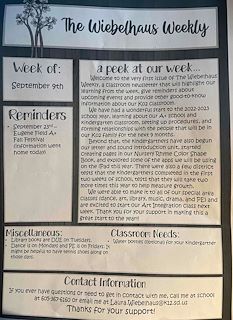 The Wiebelhaus Weekly
Week of:
September 9th
Reminders
• September 23rd -
Eugene Field A+
Art Festival
(information went
home today)
a peek at our week...
Welcome to the very first issue of The Wiebelhaus
Weekly, a classroom newsletter that will highlight our
learning from the week, give reminders about
upcoming events and provide other good-to-know
information about our K102 classroom.
We have had a wonderful start to the 2022-2023
school year, learning about our A+ school and
Kindergarten classroom, setting up procedures, and
forming relationships with the people that will be in
our K102 family for the next 9 months.
Beyond that, the kindergartners have also begun
our letter and sound introduction unit, started
creating books for our Nursery Rhyme/Poetry
Book, and explored some of the apps we will be using
on the iPad this year. There were also a few district
tests that the kindergartners completed in the first
two weeks of school, tests that they will take two
more times this year to help measure growth.
We were able to make it to all of our special area
classes (dance, art, library, music, drama, and PE) and
are excited to start our Art Integration class next
week. Thank you for your support in making this a
great start to the year!
Miscellaneous:
• Library books are DUE on Tuesdays.
• Dance is on Mondays and PE is on Fridays. It
might be helpful to have tennis shoes along on
those days.
Classroom Needs:
• Water bottles (optional) for your kindergartner
Contact Information
If you ever have questions or need to get in contact with me, call me at school
at 605-367-6160 or email me at Laura.Wiebelhaus@k12.sd.us
Thanks for your support!